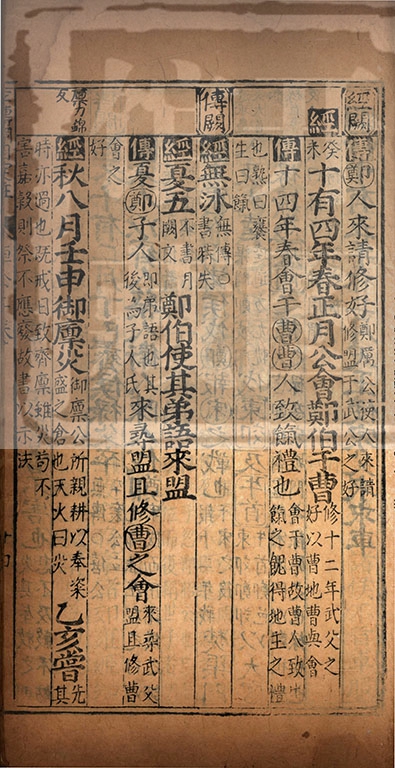 經闕
傳鄭人來請修好鄭厲公使人來請
經癸未十有四年春正月公會鄭伯于曹修十二年武父之好以曹地曹與會
傳十四年春會于曹曹人致餼禮也會于曹故曹人致餼得地主之禮
也熟曰饔生曰餼
傳闕
經無冰無傳書時失
經夏五不書月闕文鄭伯使其弟語來盟
傳夏鄭子人即弟語也其後為子人氏來尋盟且修曹之會來尋武父盟且修曹
會之好
廩力錦反
經秋八月壬申御廩災御廩公所親耕以奉粢盛之倉也天火曰災乙亥嘗先其
時亦過也既戒日致齊廩雖災苟不害嘉穀則祭不應廢故書以示法